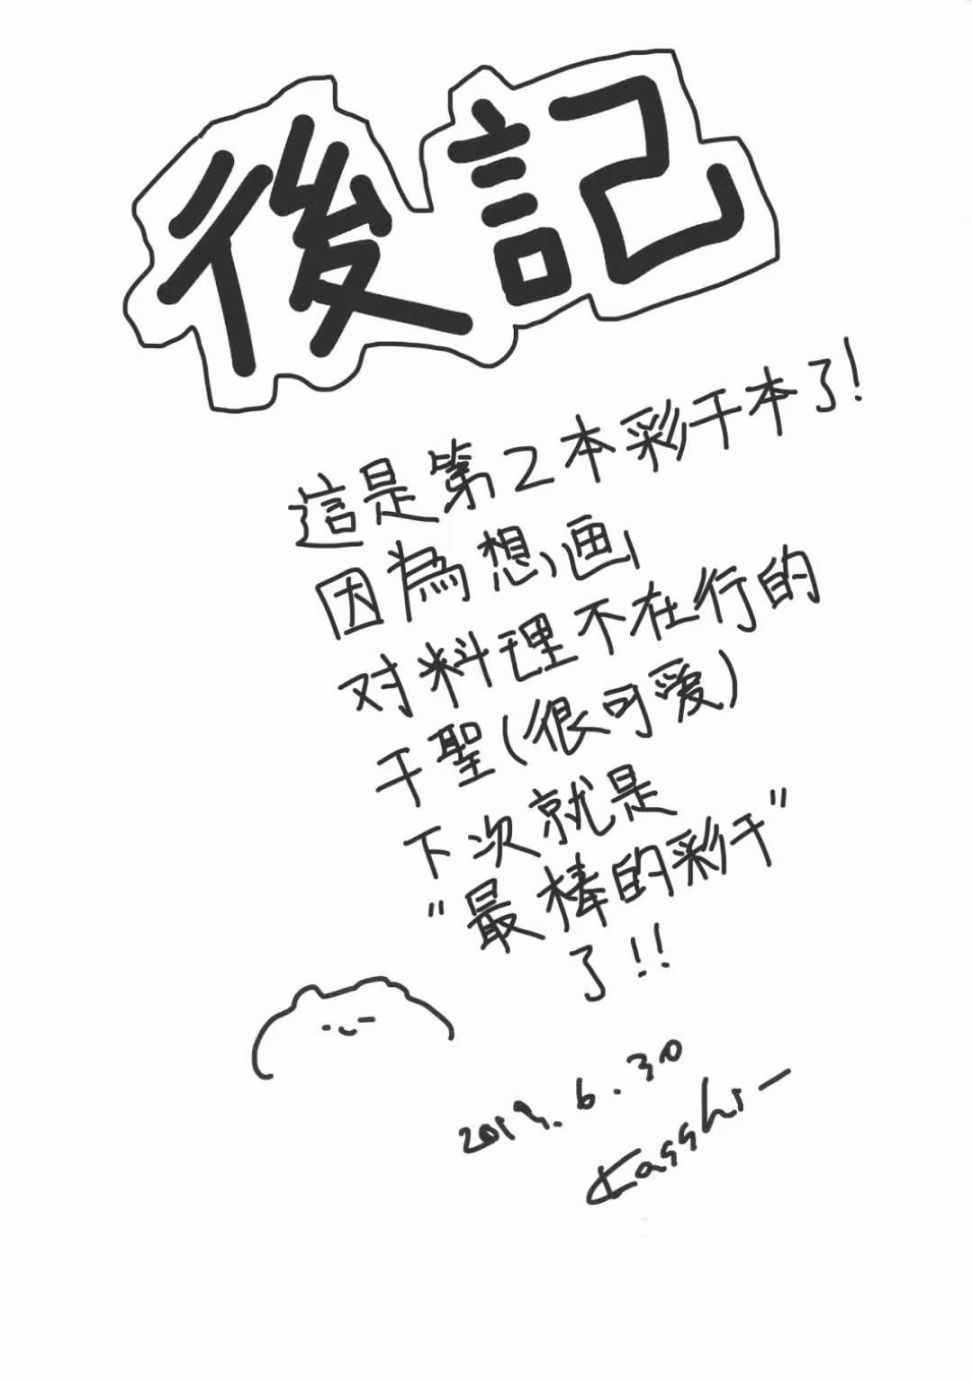 後記
這是第2本彩千本了!
因為想画
对料理不在行的
千聖(很可愛)
下次就是
"最棒的彩千"
了!!
2019.6.30
Kasshi-